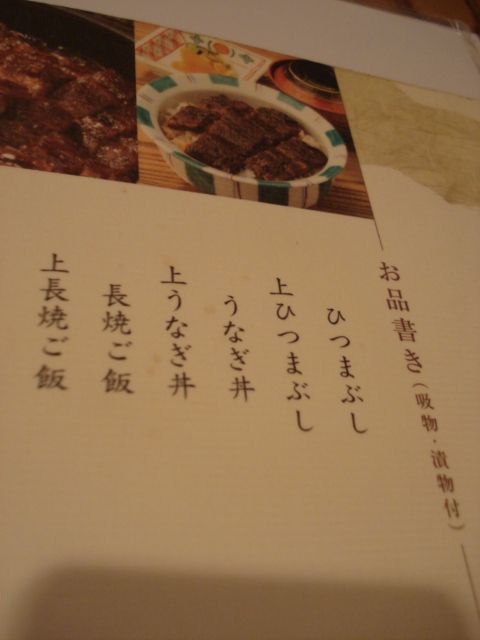 お品書き（吸物・漬物付）
ひつまぶし
上ひつまぶし
うなぎ丼
上うなぎ丼
長焼ご飯
上長焼ご飯